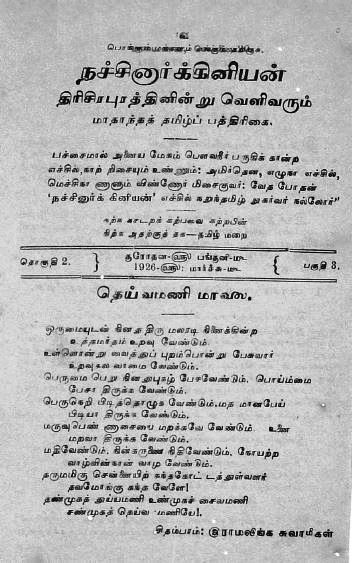 உ
நச்சினார்க்கினியன்
திரிசிரபுரத்தினின்று வெளிவரும்
மாதாந்தத் தமிழ்ப் பத்திரிகை.
பச்சைமால் அனைய மேகம் பௌவநீர் பருகிக் கான்ற
எச்சில், காற் றிசையும் உண்ணும்: அமிர்தென, எழுகா எச்சில்,
மெச்சிகா ணாளும் விண்ணோர் மிசைகுவர்: வேத போதன்
'நச்சினார்க் கினியன்' எச்சில் கறுந்தமிழ் நுகர்வர் கல்லோர்"
கற்க கசடறக் கற்பவை கற்றபின்
நிற்க அதற்குத் தக—தமிழ் மறை
தொகுதி 2. } குரோதன-௵ பங்குனி-௴ { பகுதி 3.
1926-௵ மார்ச்சு-௴
தெய்வமணி மாலை.
ஒருமையுடன் நினதுதிரு மலரடி நினைக்கின்ற
உத்தமர்தம் உறவு வேண்டும்.
உள்ளொன்று வைத்துப் புறம்பொன்று பேசுவார்
உறவுகல வாமை வேண்டும்.
பெருமை பெறு நினதுபுகழ் பேசவேண்டும். பொய்ம்மை
பேசா திருக்க வேண்டும்.
பெருநெறி பிடித்தொழுக வேண்டும். மத மானபேய்
பிடியா திருக்க வேண்டும்.
மருவுபெண் ணாசையை மறக்கவே வேண்டும் உனை
மறவா திருக்க வேண்டும்.
மதிவேண்டும். நின்கருணை நிதிவேண்டும். நோயற்ற
வாழ்வின்நான் வாழ வேண்டும்.
தருமமிகு சென்னையிற் கந்தகோட் டத்துள்வளர்
தலமோங்கு கந்த வேளே!
தண்முகத் துய்யமணி உண்முகச் சைவமணி
சண்முகத் தெய்வ மணியே!.
சிதம்பரம்: இராமலிங்க சுவாமிகள்